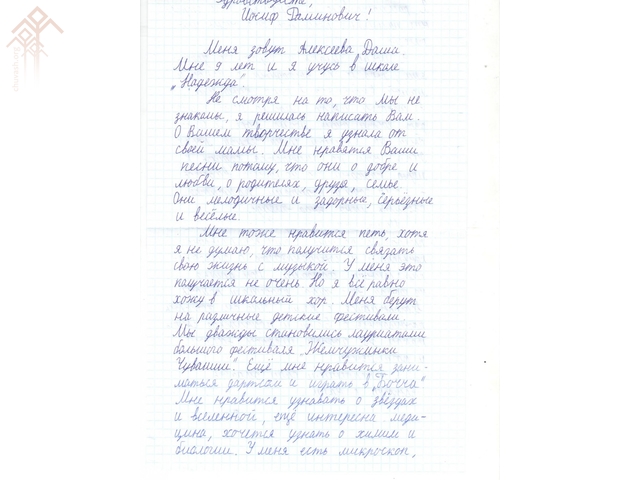 Здравствуйте,
Иосиф Раминович!
Меня зовут Алексеева Даша.
Мне 9 лет и я учусь в школе
„Надежда".
Не смотря на то, что мы не
знакомы, я решилась написать Вам.
О Вашем творчестве я узнала от
своей мамы. Мне нравятся Ваши
песни потому, что они о добре и
любви, о родителях, друзья, семье.
Они мелодичные и задорные, серьёзные
и весёлые.
Мне тоже нравится петь, хотя
я не думаю, что получится связать
свою жизнь с музыкой. У меня это
получается не очень. Но я всё равно
хожу в школьный хор. Меня берут
на различные детские фестивали.
Мы дважды становились лауреатами
большого фестиваля „Жемчужинки
Чувашии". Ещё мне нравится зани-
маться дартсом и играть в „Бочча"
Мне нравится узнавать о звёздах
и вселенной, ещё интересна меди-
цина, хочется узнать о химии и
биологии. У меня есть микроскоп,